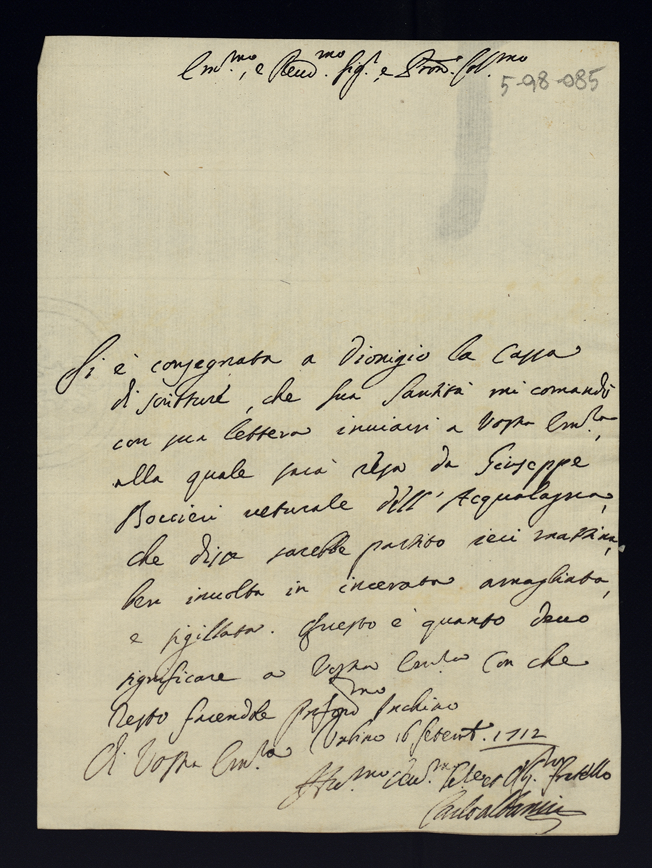 Em.mo, e Reud.mo Sig.r, e Pron. Col.mo
5-98-085
Si è consegnata a Dionigio la Cassa
di scritture, che sua Santità mi comandò
con sua lettera inviarsi a Vostra Em.za,
alla quale sarà resa da Giuseppe
Boccieri veturale dell'Acqualagna,
che disse sarebbe partito ieri mattina,
ben involta in incerata amagliata,
e sigillata. Questo è quanto deuo
significare a Vostra Em.za Con che
resto facendole prof.mo Inchino
Di Vostra Em.za Urbino 16 Settemb. 1712
fratello
Carlo Albani